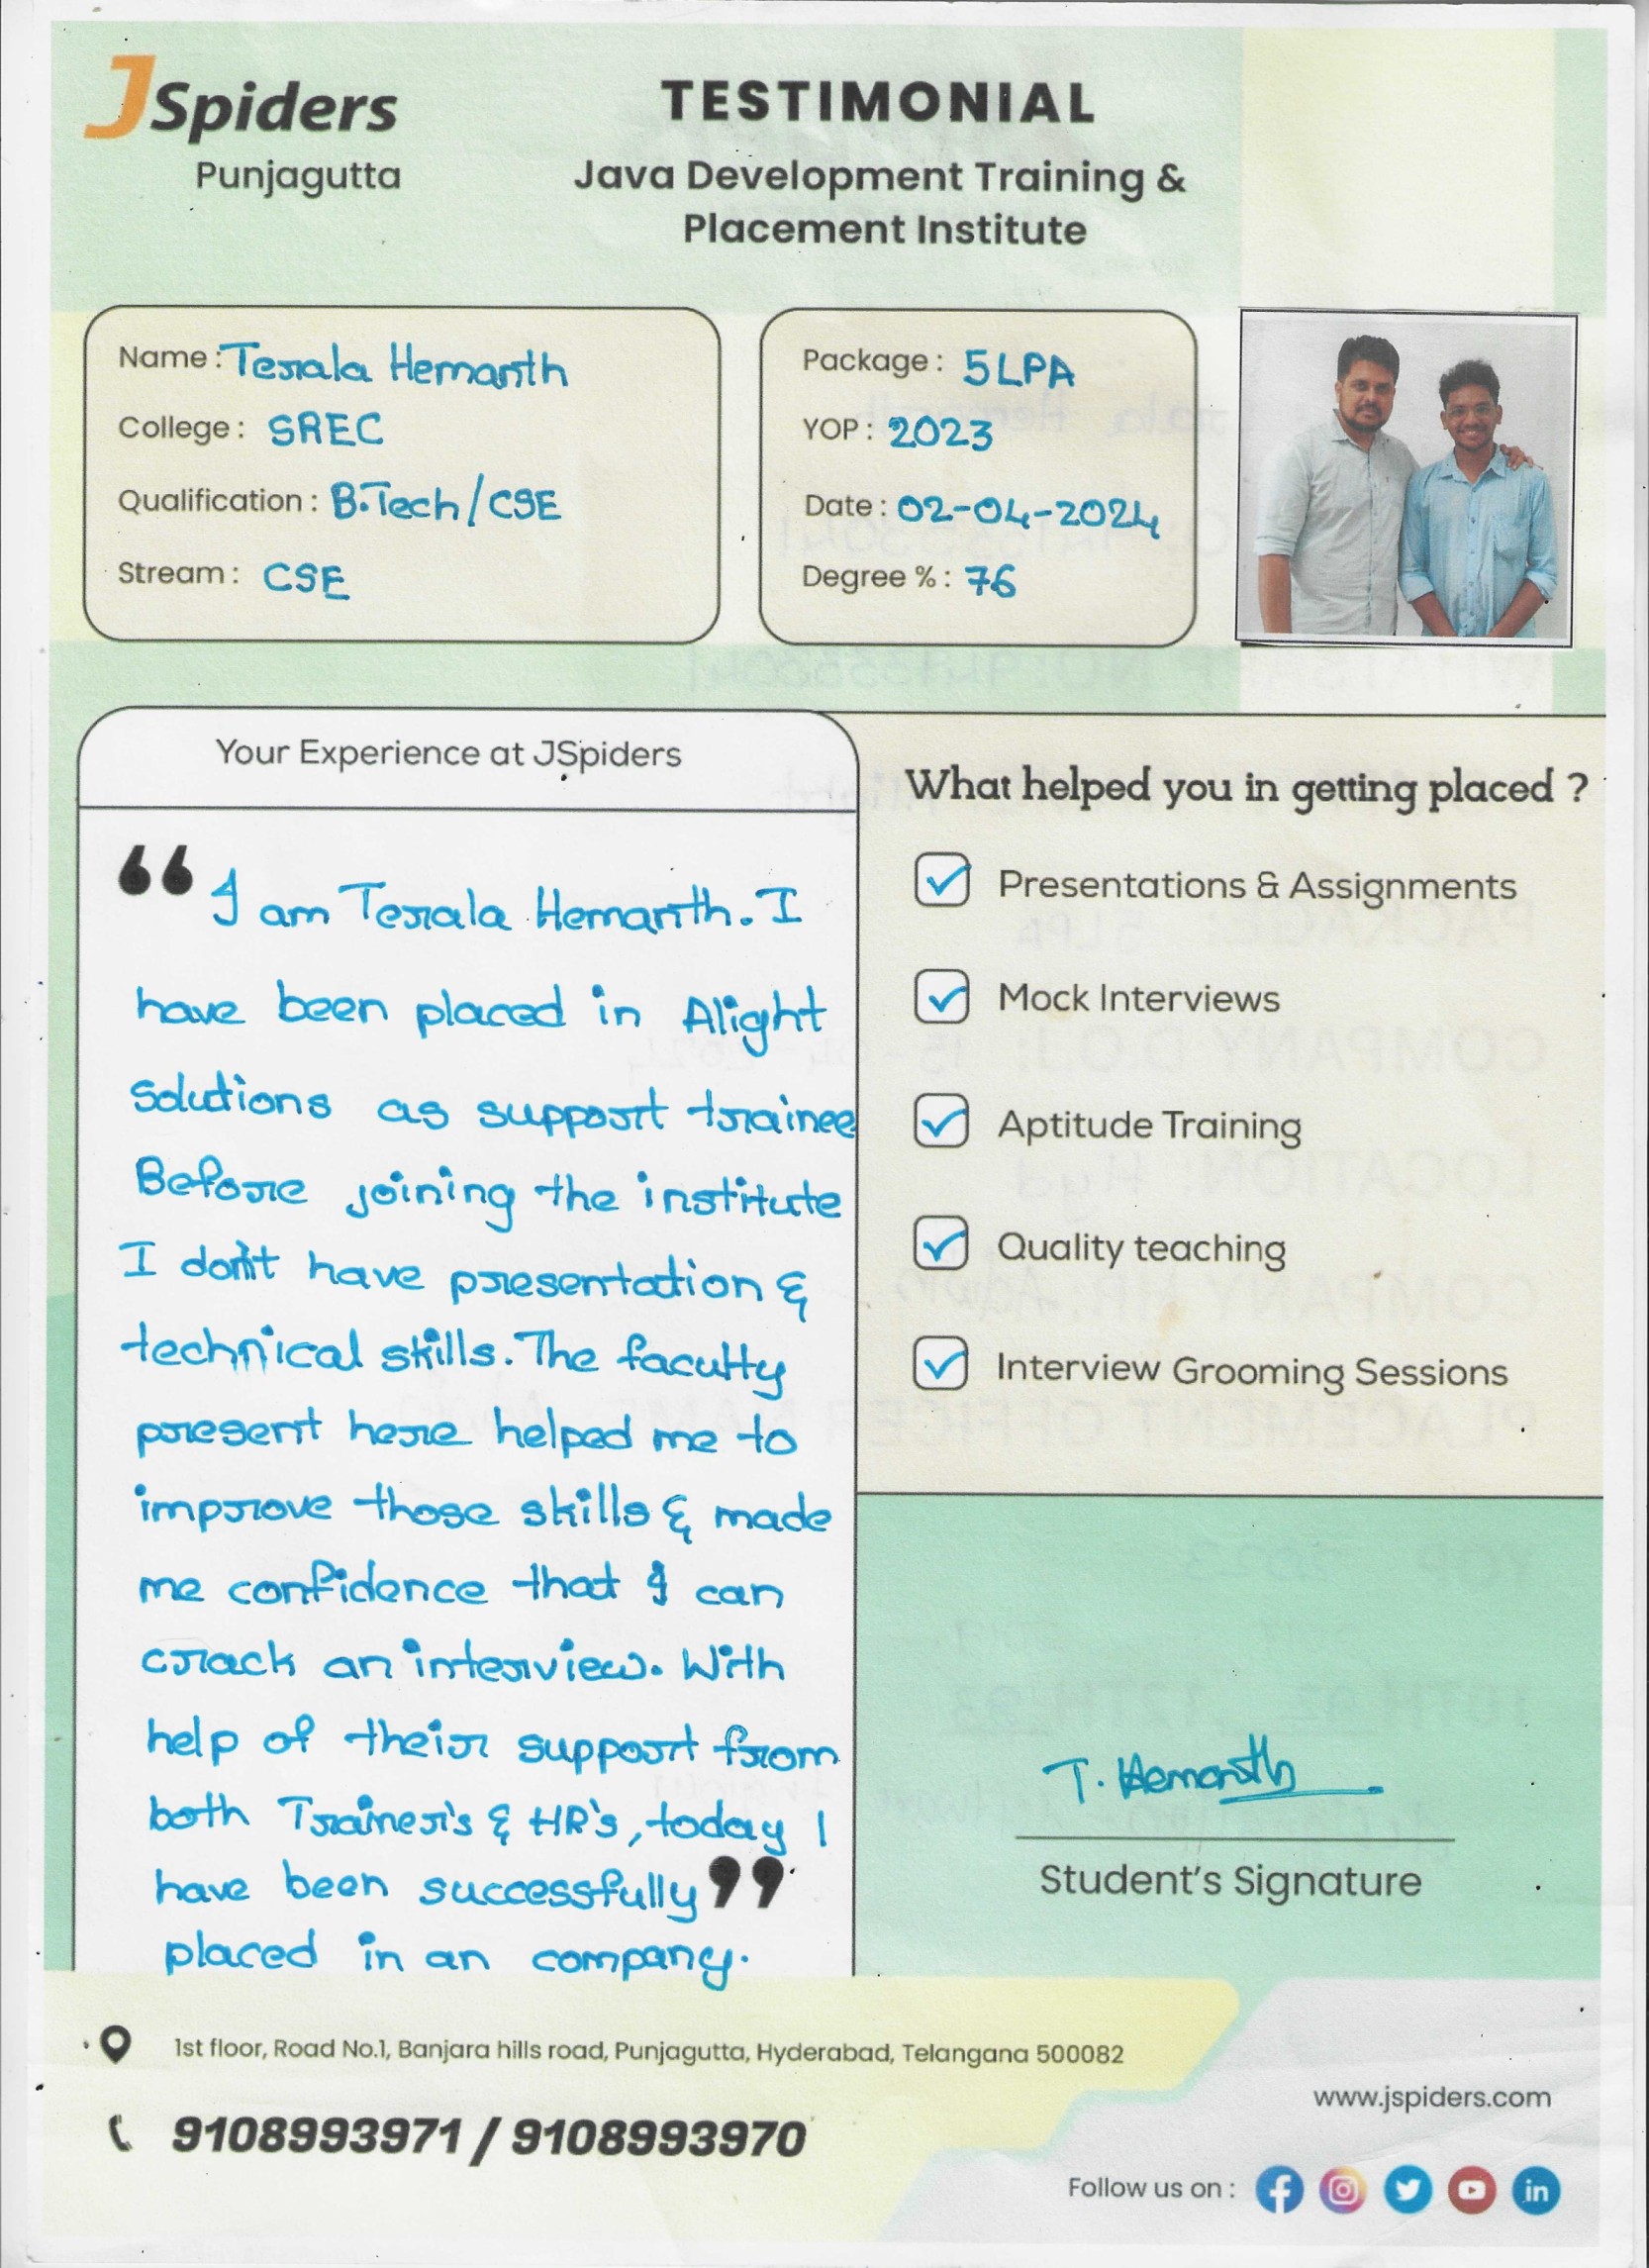 JSpiders
Punjagutta
TESTIMONIAL
Java Development Training &
Placement Institute
Name : Terala Hemanth
College : SREC
Qualification : B.Tech/CSE
Stream : CSE
Package : 5LPA
YOP : 2023
Date : 02-04-2024
Degree % : 76
Your Experience at JSpiders
“ I am Terala Hemanth. I
have been placed in Alight
Solutions as support trainee
Before joining the institute
I don't have presentation &
technical skills. The faculty
present here helped me to
improve those skills & made
me confidence that I can
crack an interview. With
help of their support from
both Trainer's & HR's, today I
have been successfully ”
placed in an company.
What helped you in getting placed ?
Presentations & Assignments
Mock Interviews
Aptitude Training
Quality teaching
Interview Grooming Sessions
T. Hemanth
Student's Signature
1st floor, Road No.1, Banjara hills road, Punjagutta, Hyderabad, Telangana 500082
9108993971 / 9108993970
www.jspiders.com
Follow us on :